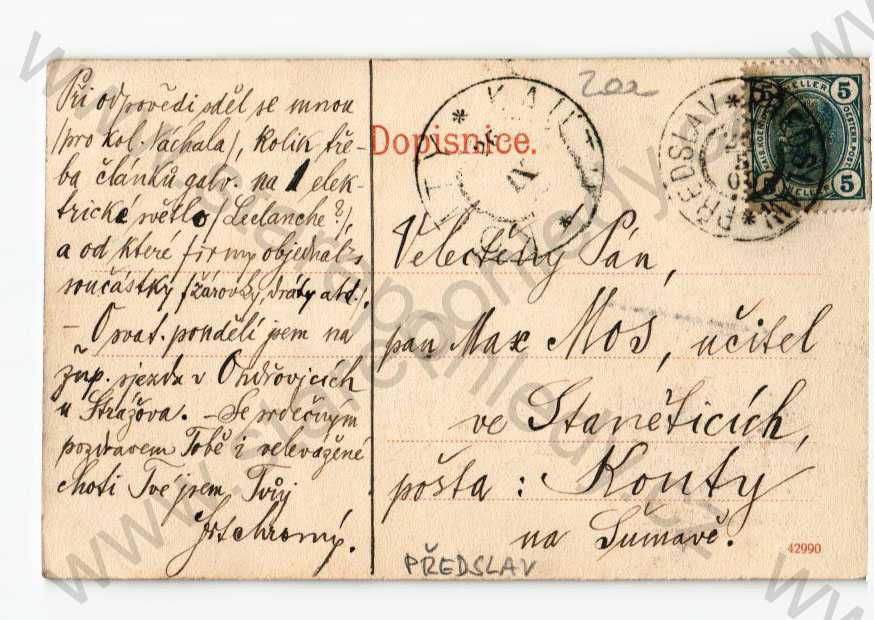 Při odpovědi sděl se mnou
/pro kol. Váchala/, kolik tře-
ba článků galv. na 1 elek-
trické světlo /Leclanche?/,
a od které firmy objednal's
součástky /žárovky, dráty atd./.
- O svat. pondělí jsem na
žup. sjezdu v Ondřovicích
u Strážova. - Se srdečným
pozdravem Tobě i velevážené
choti Tvé jsem Tvůj
Dopisnice.
202
PŘEDSLAV
5 HELLER 5
5 HELLER 5
Velectěný Pán,
pan Max Moš, učitel
ve Staněticích,
pošta: Kouty
na Šumavě.
42990
PŘEDSLAV
www.stare-pohledy.cz